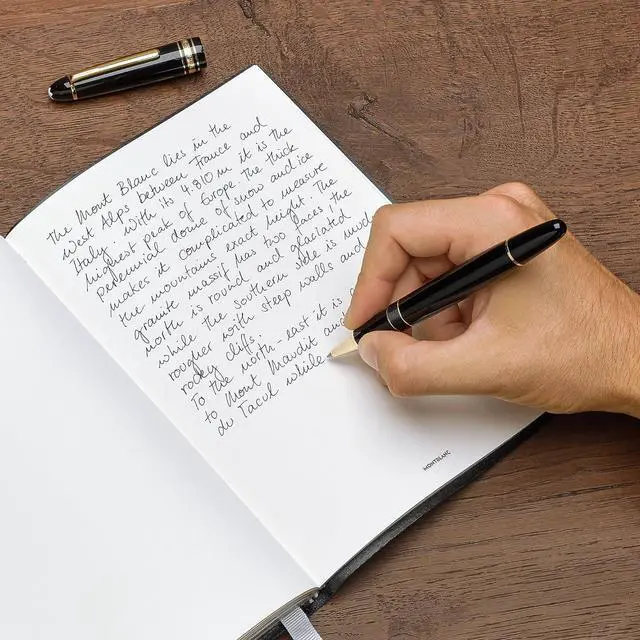 The Mont Blanc lies in the
West Alps between France and
Italy. With its 4.810 m it is the
highest peak of Europe. The thick
perennial dome of snow and ice
makes it complicated to measure
the mountains exact height. The
granite massif has two faces, the
north is round and glaciated
while the southern side is much
rougher with steep walls and
rocky cliffs.
To the north-east it is
to Mont Maudit and
du Tacul while
MONTBLANC